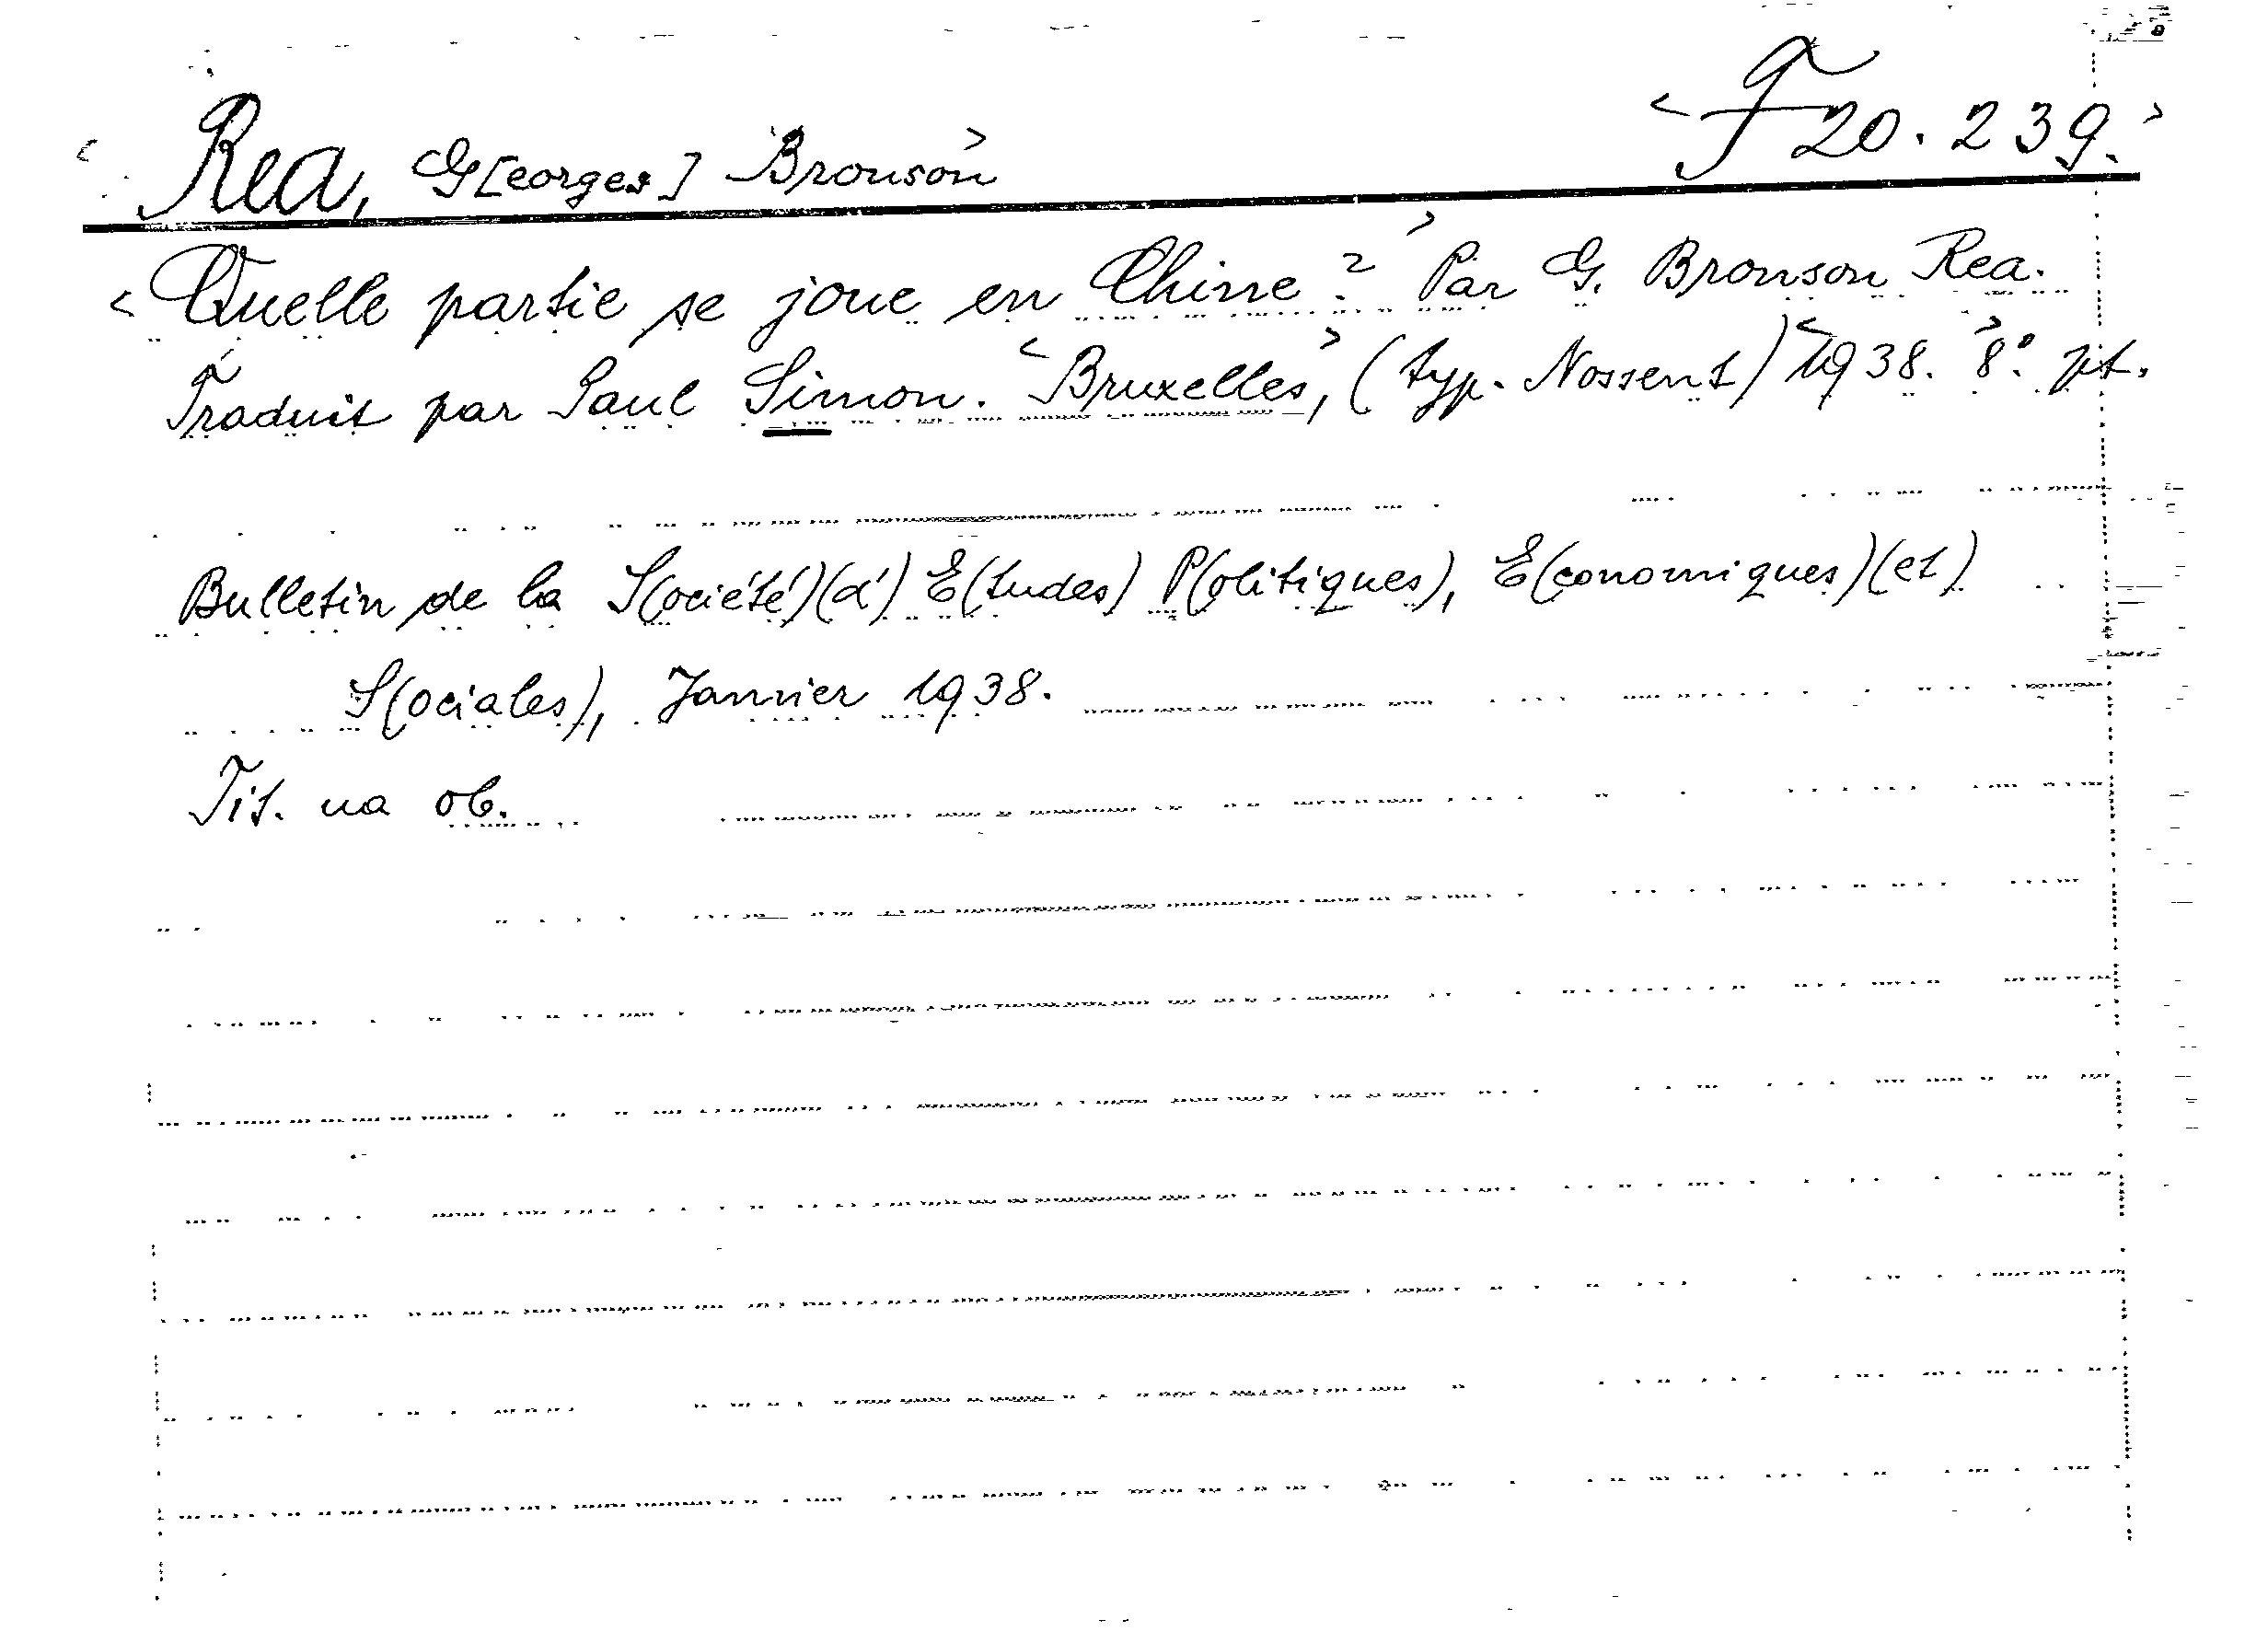 ‹ Rea, G[eorges] Bronson › ‹ F 20.239. ›
‹ Quelle partie se joue en Chine ? › Par G. Bronson Rea.
Traduit par Paul Simon. ‹ Bruxelles ›, (typ. Nossent) ‹ 1938. › 8°. pit.
Bulletin de la S(ociété)(d') E(tudes) P(olitiques), E(conomiques)(et)
S(ociales), Janvier 1938.
Tit. na ob.